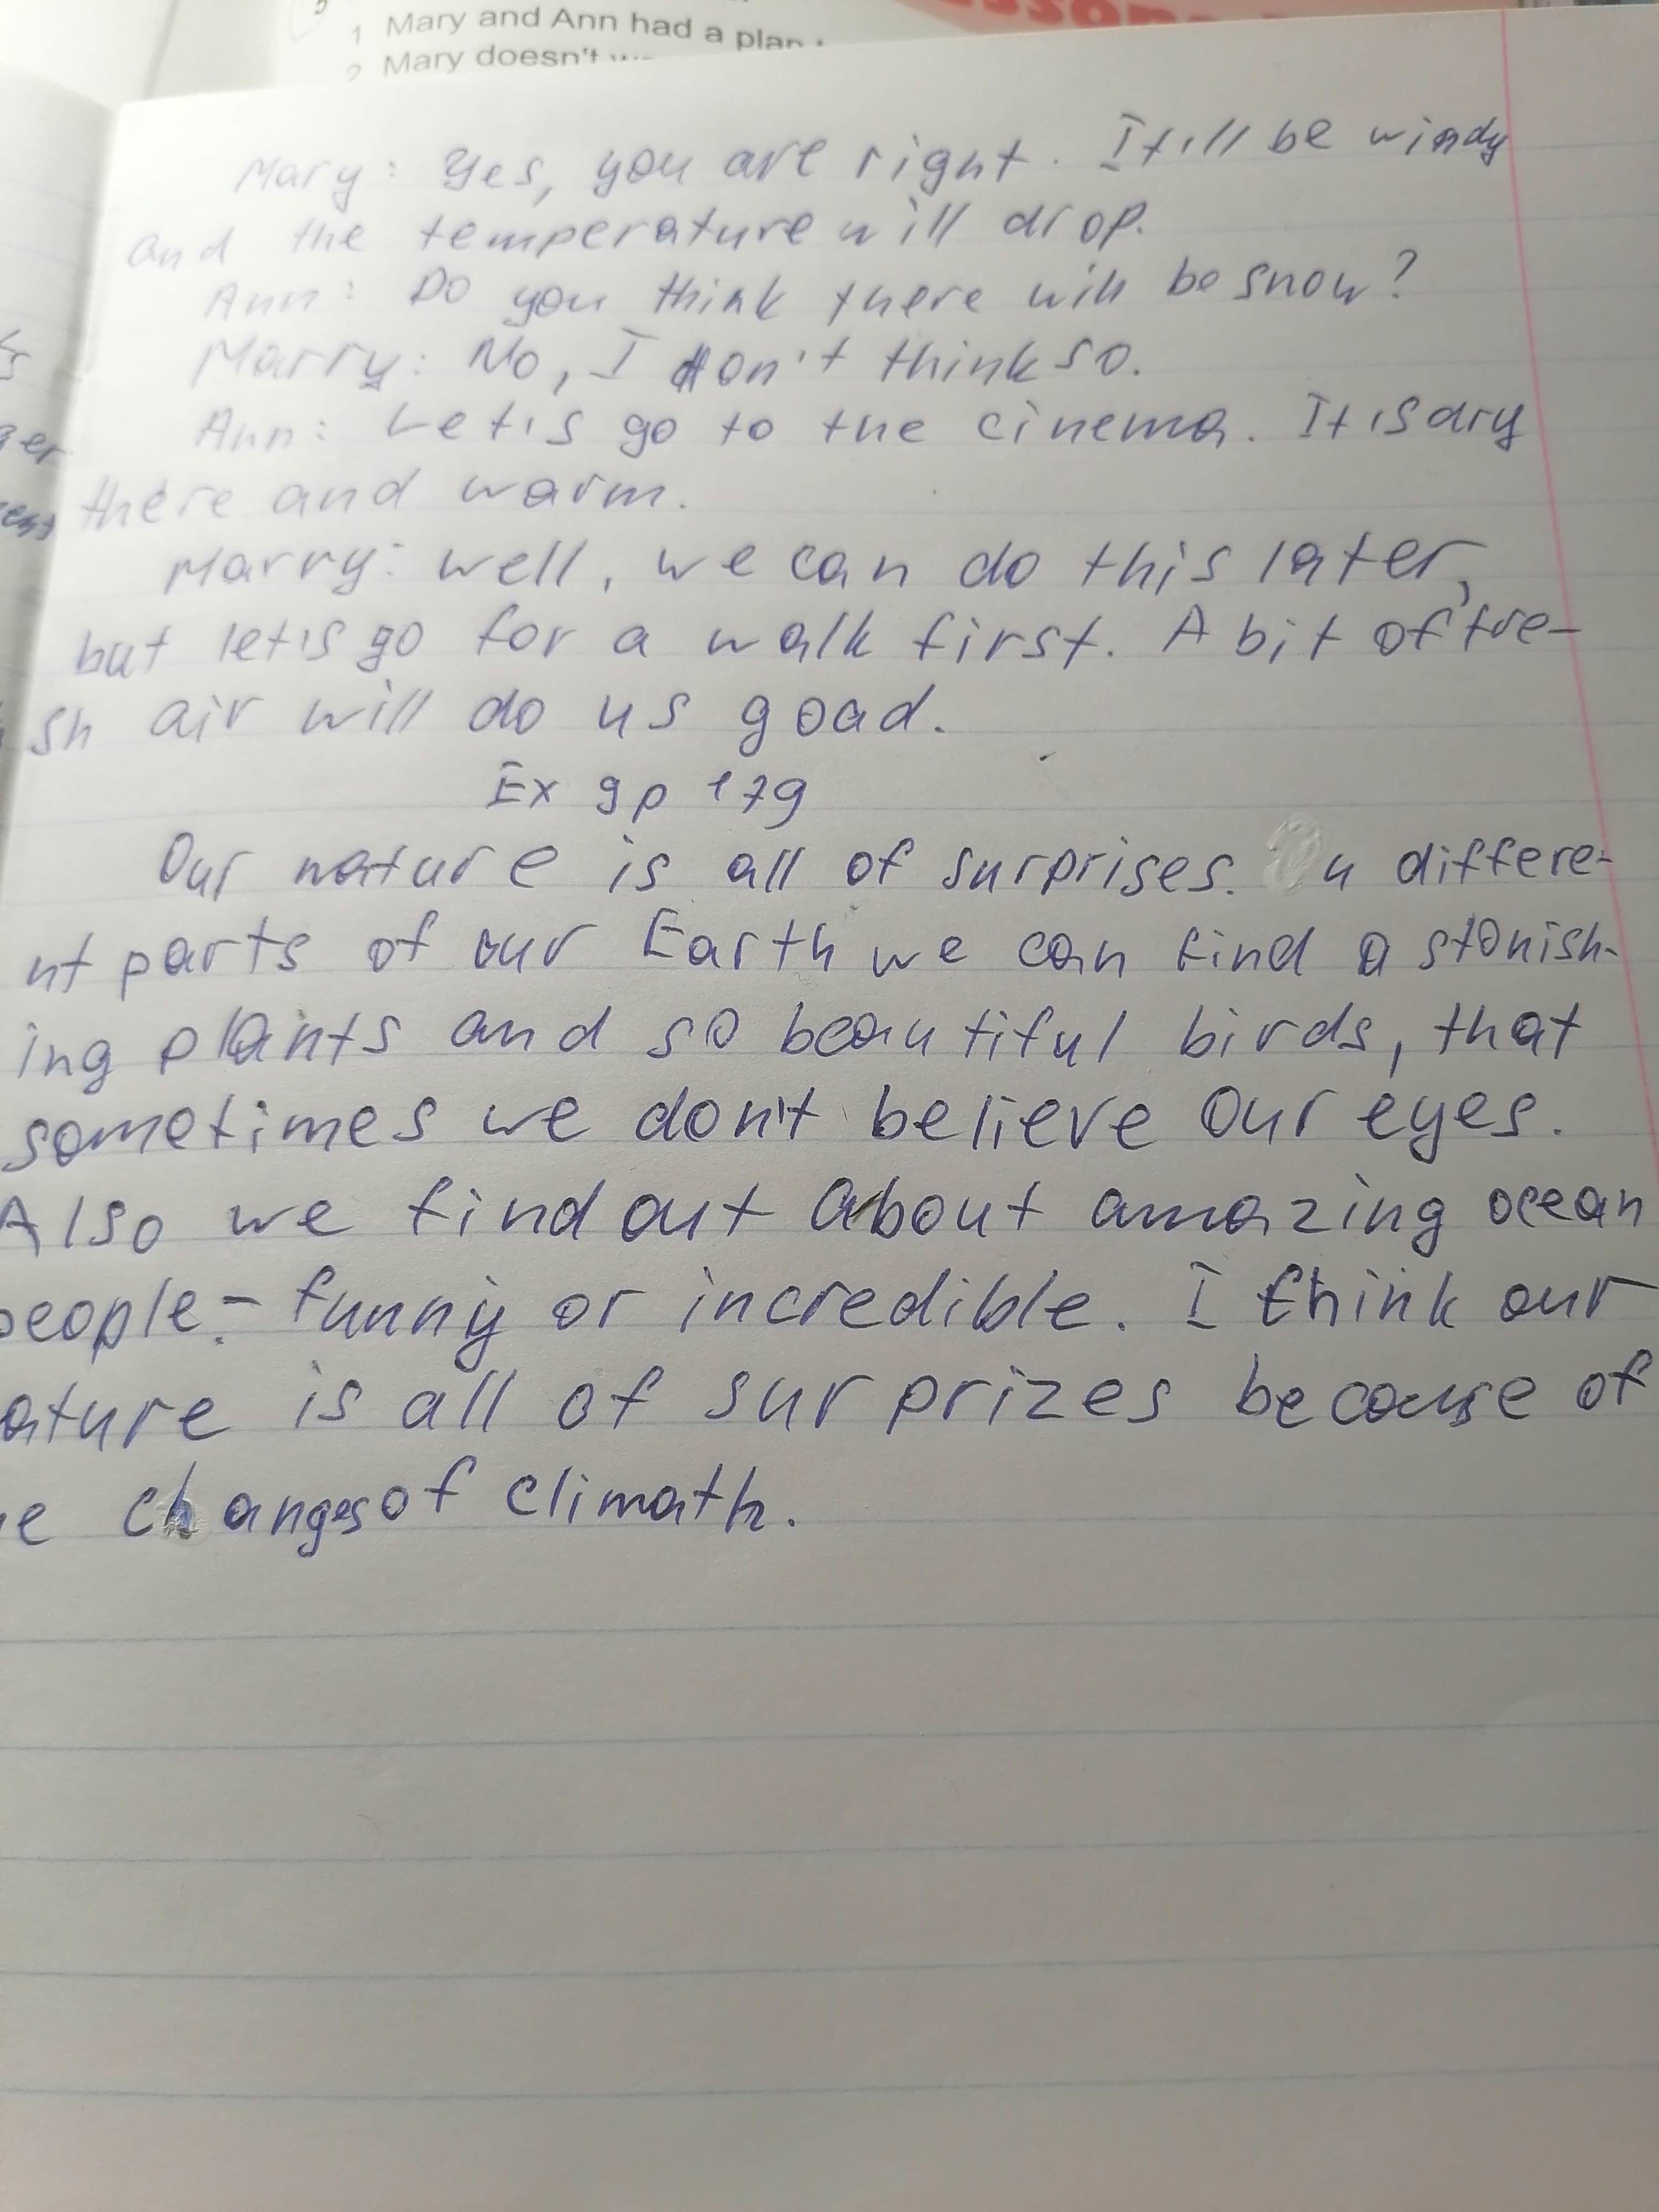 1 Mary and Ann had a plan
2 Mary doesn't
Mary: Yes, you are right. It'll be windy
and the temperature will drop.
Ann: Do you think there will be snow?
Marry: No, I don't think so.
Ann: Let's go to the cinema. It is dry
there and warm.
Marry: Well, we can do this later,
but let's go for a walk first. A bit of fre-
sh air will do us goad.
Ex 9 p 179
Our nature is all of surprises. In differe-
nt parts of our Earth we can find a stonish-
ing plants and so beautiful birds, that
sometimes we don't believe our eyes.
Also we find out about amazing ocean
people - funny or incredible. I think our
ature is all of surprizes because of
e changes of climath.